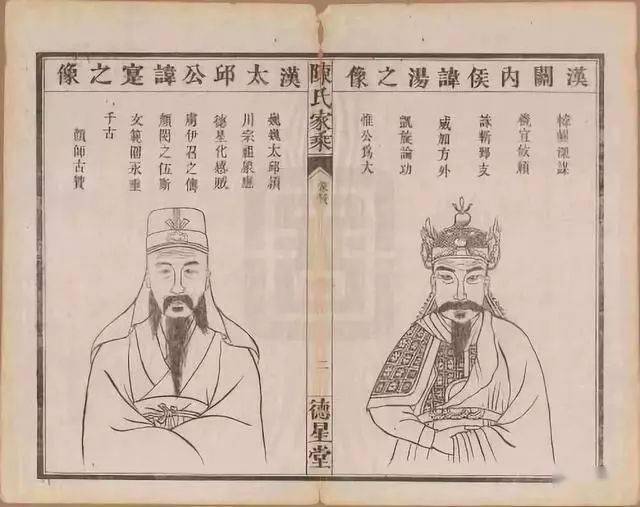 漢關內侯諱湯之像
韓闢深謀
儀宜攸賴
誅斬郅支
威加方外
凱旋論功
惟公爲大
陳氏家乘
二
德星堂
漢太邱公諱寔之像
巍巍太邱潁
川宗祖嚴應
德星化感賊
虜伊召之儔
顏閔之伍斯
文範圍永垂
千古
顏師古贊